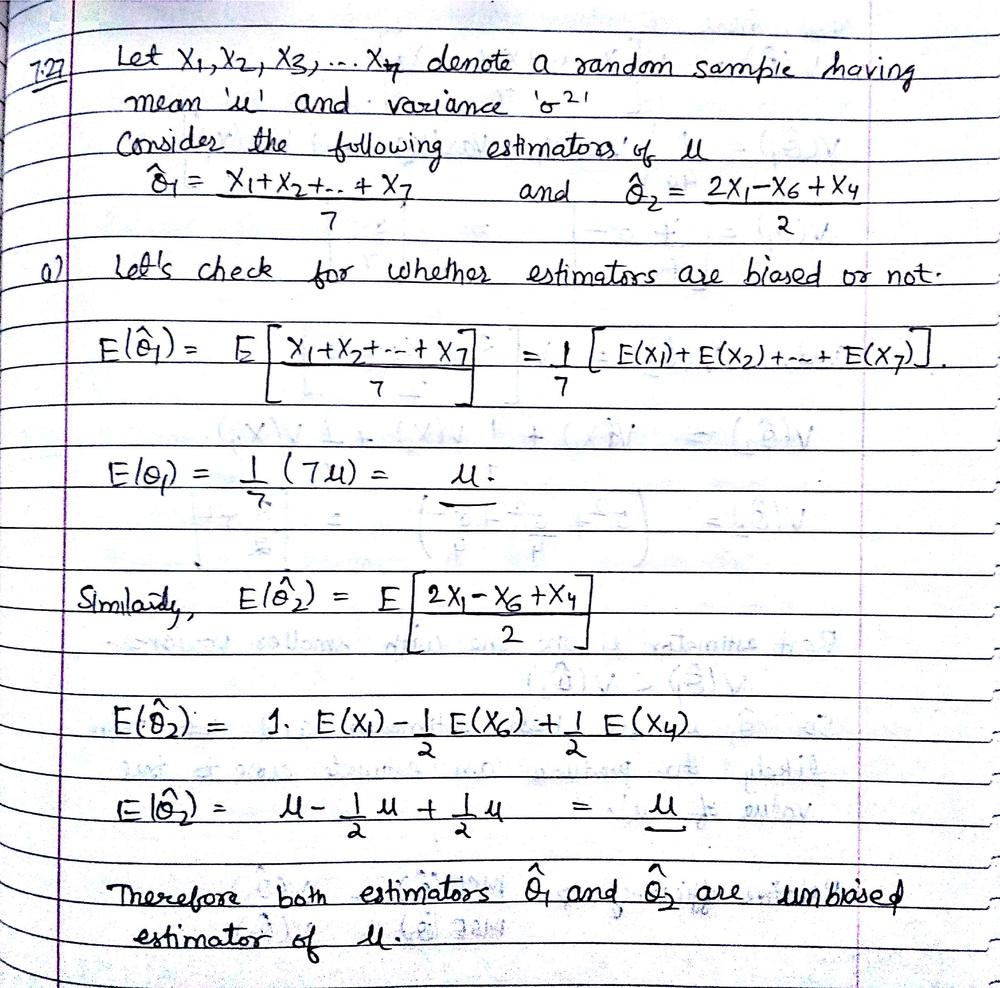 7.27 Let X₁, X₂, X₃, ... X₇ denote a random sample having
mean 'μ' and variance 'σ²'
Consider the following estimators of μ
θ̂₁ = (X₁+X₂+...+X₇)/7 and θ̂₂ = (2X₁-X₆+X₄)/2
a) Let's check for whether estimators are biased or not.
E(θ̂₁) = E[(X₁+X₂+...+X₇)/7] = 1/7 [E(X₁)+E(X₂)+...+E(X₇)].
E(θ₁) = 1/7 (7μ) = μ.
Similarly, E(θ̂₂) = E[(2X₁-X₆+X₄)/2]
E(θ̂₂) = 1. E(X₁) - 1/2 E(X₆) + 1/2 E(X₄)
E(θ̂₂) = μ - 1/2 μ + 1/2 μ = μ
Therefore both estimators θ̂₁ and θ̂₂ are unbiased
estimator of μ.